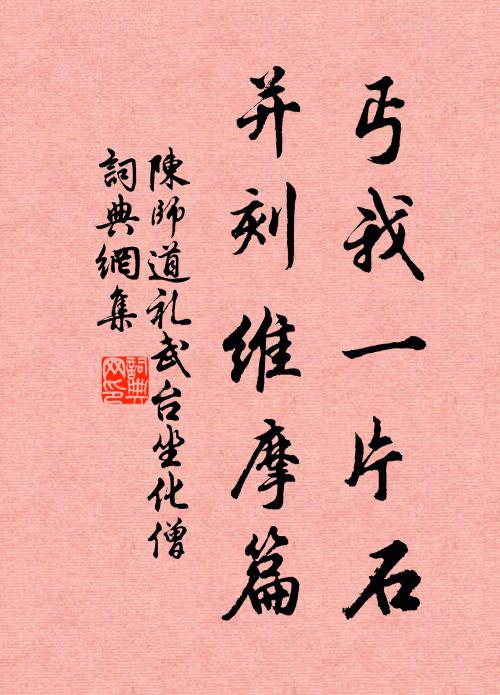 丐我一片石
并刻維摩篇
陳師道礼武台坐化僧
詞典網集
詞典网印